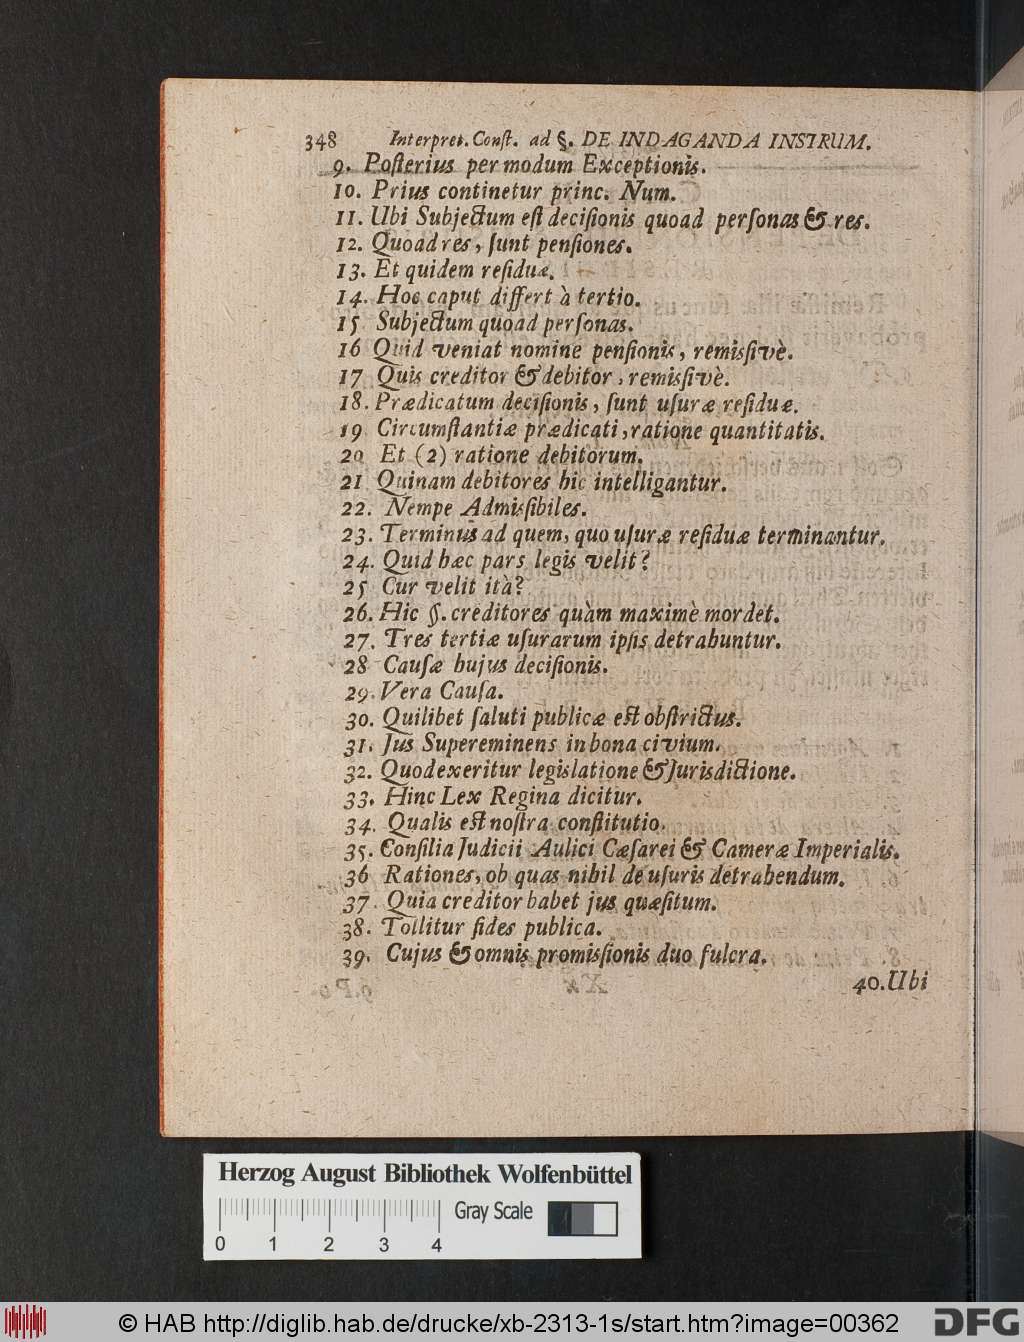 348 Interpret. Const. ad §. DE INDAGANDA INSTRUM.
9. Poſterius per modum Exceptionis.
10. Prius continetur princ. Num.
11. Ubi Subjectum eſt deciſionis quoad perſonas & res.
12. Quoad res, ſunt penſiones.
13. Et quidem reſiduæ.
14. Hoc caput differt à tertio.
15 Subjectum quoad perſonas.
16 Quid veniat nomine penſionis, remisſivè.
17 Quis creditor & debitor, remisſivè.
18. Prædicatum deciſionis, ſunt uſuræ reſiduæ.
19 Circumſtantiæ prædicati, ratione quantitatis.
20 Et (2) ratione debitorum.
21 Quinam debitores hic intelligantur.
22. Nempe Admisſibiles.
23. Terminus ad quem, quo uſuræ reſiduæ terminantur.
24. Quid hæc pars legis velit?
25 Cur velit ità?
26. Hic §. creditores quàm maximè mordet.
27. Tres tertiæ uſurarum ipſis detrahuntur.
28 Cauſæ hujus deciſionis.
29. Vera Cauſa.
30. Quilibet ſaluti publicæ est obſtrictus.
31. Jus Supereminens in bona civium.
32. Quod exeritur legislatione & Jurisdictione.
33. Hinc Lex Regina dicitur.
34. Qualis est noſtra conſtitutio.
35. Conſilia Judicii Aulici Cæſarei & Cameræ Imperialis.
36 Rationes, ob quas nihil de uſuris detrahendum.
37. Quia creditor habet jus quæſitum.
38. Tollitur fides publica.
39. Cujus & omnis promisſionis duo fulcra.
40. Ubi
Herzog August Bibliothek Wolfenbüttel
Gray Scale
0 1 2 3 4
© HAB http://diglib.hab.de/drucke/xb-2313-1s/start.htm?image=00362
DFG